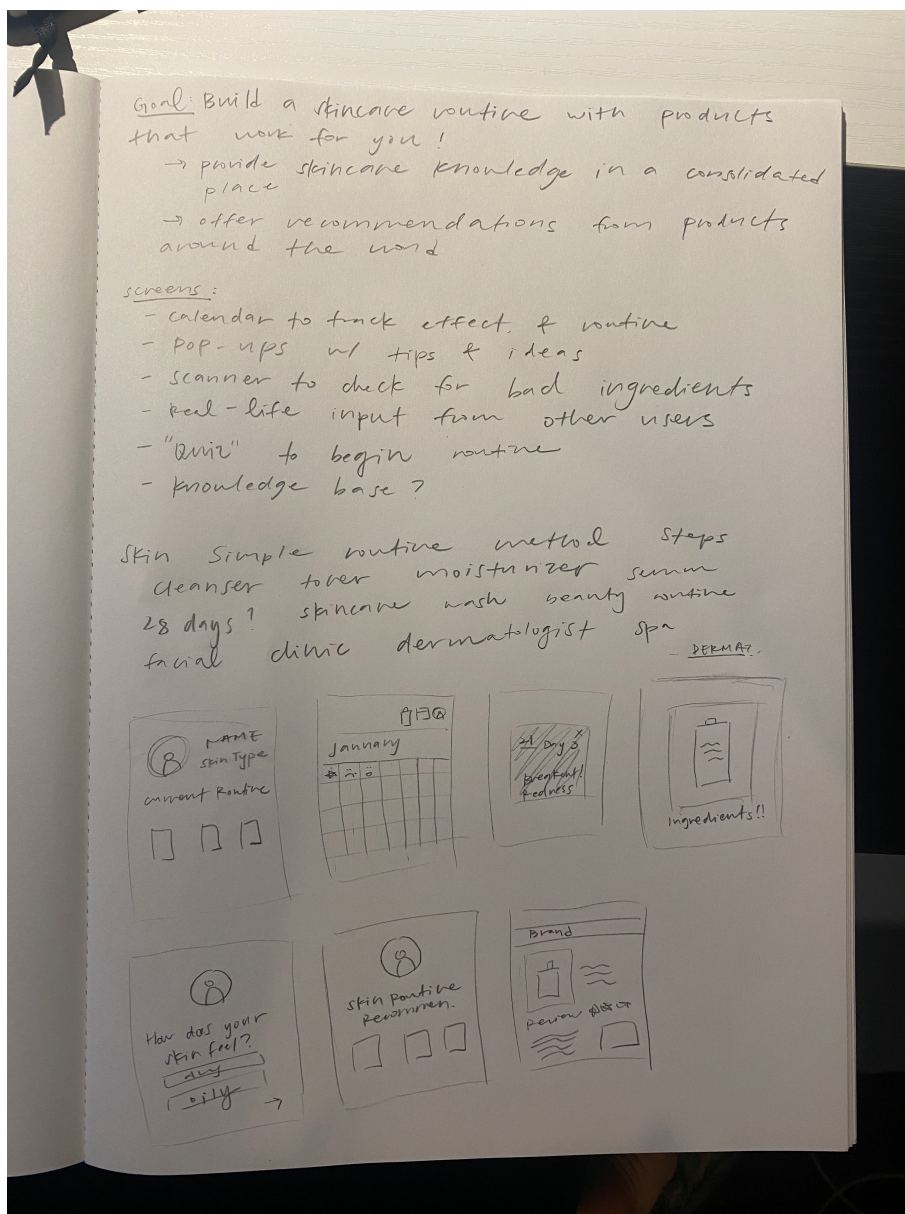 Goal: Build a skincare routine with products
that work for you!
→ provide skincare knowledge in a consolidated
place
→ offer recommendations from products
around the world
screens:
- calendar to track effect. & routine
- POP-ups w/ tips & ideas
- scanner to check for bad ingredients
- Real-life input from other users
- "Quiz" to begin routine
- knowledge base?
Skin Simple routine method steps
cleanser toner moisturizer serum
28 days? skincare wash beauty routine
facial clinic dermatologist spa
- DERMA?.
NAME
Skin Type
current Routine
January
21 Day 3 x
Breakout!
Redness
Ingredients!!
How does your
skin feel?
dry
oily
→
Skin Routine
Recommen.
Brand
Review